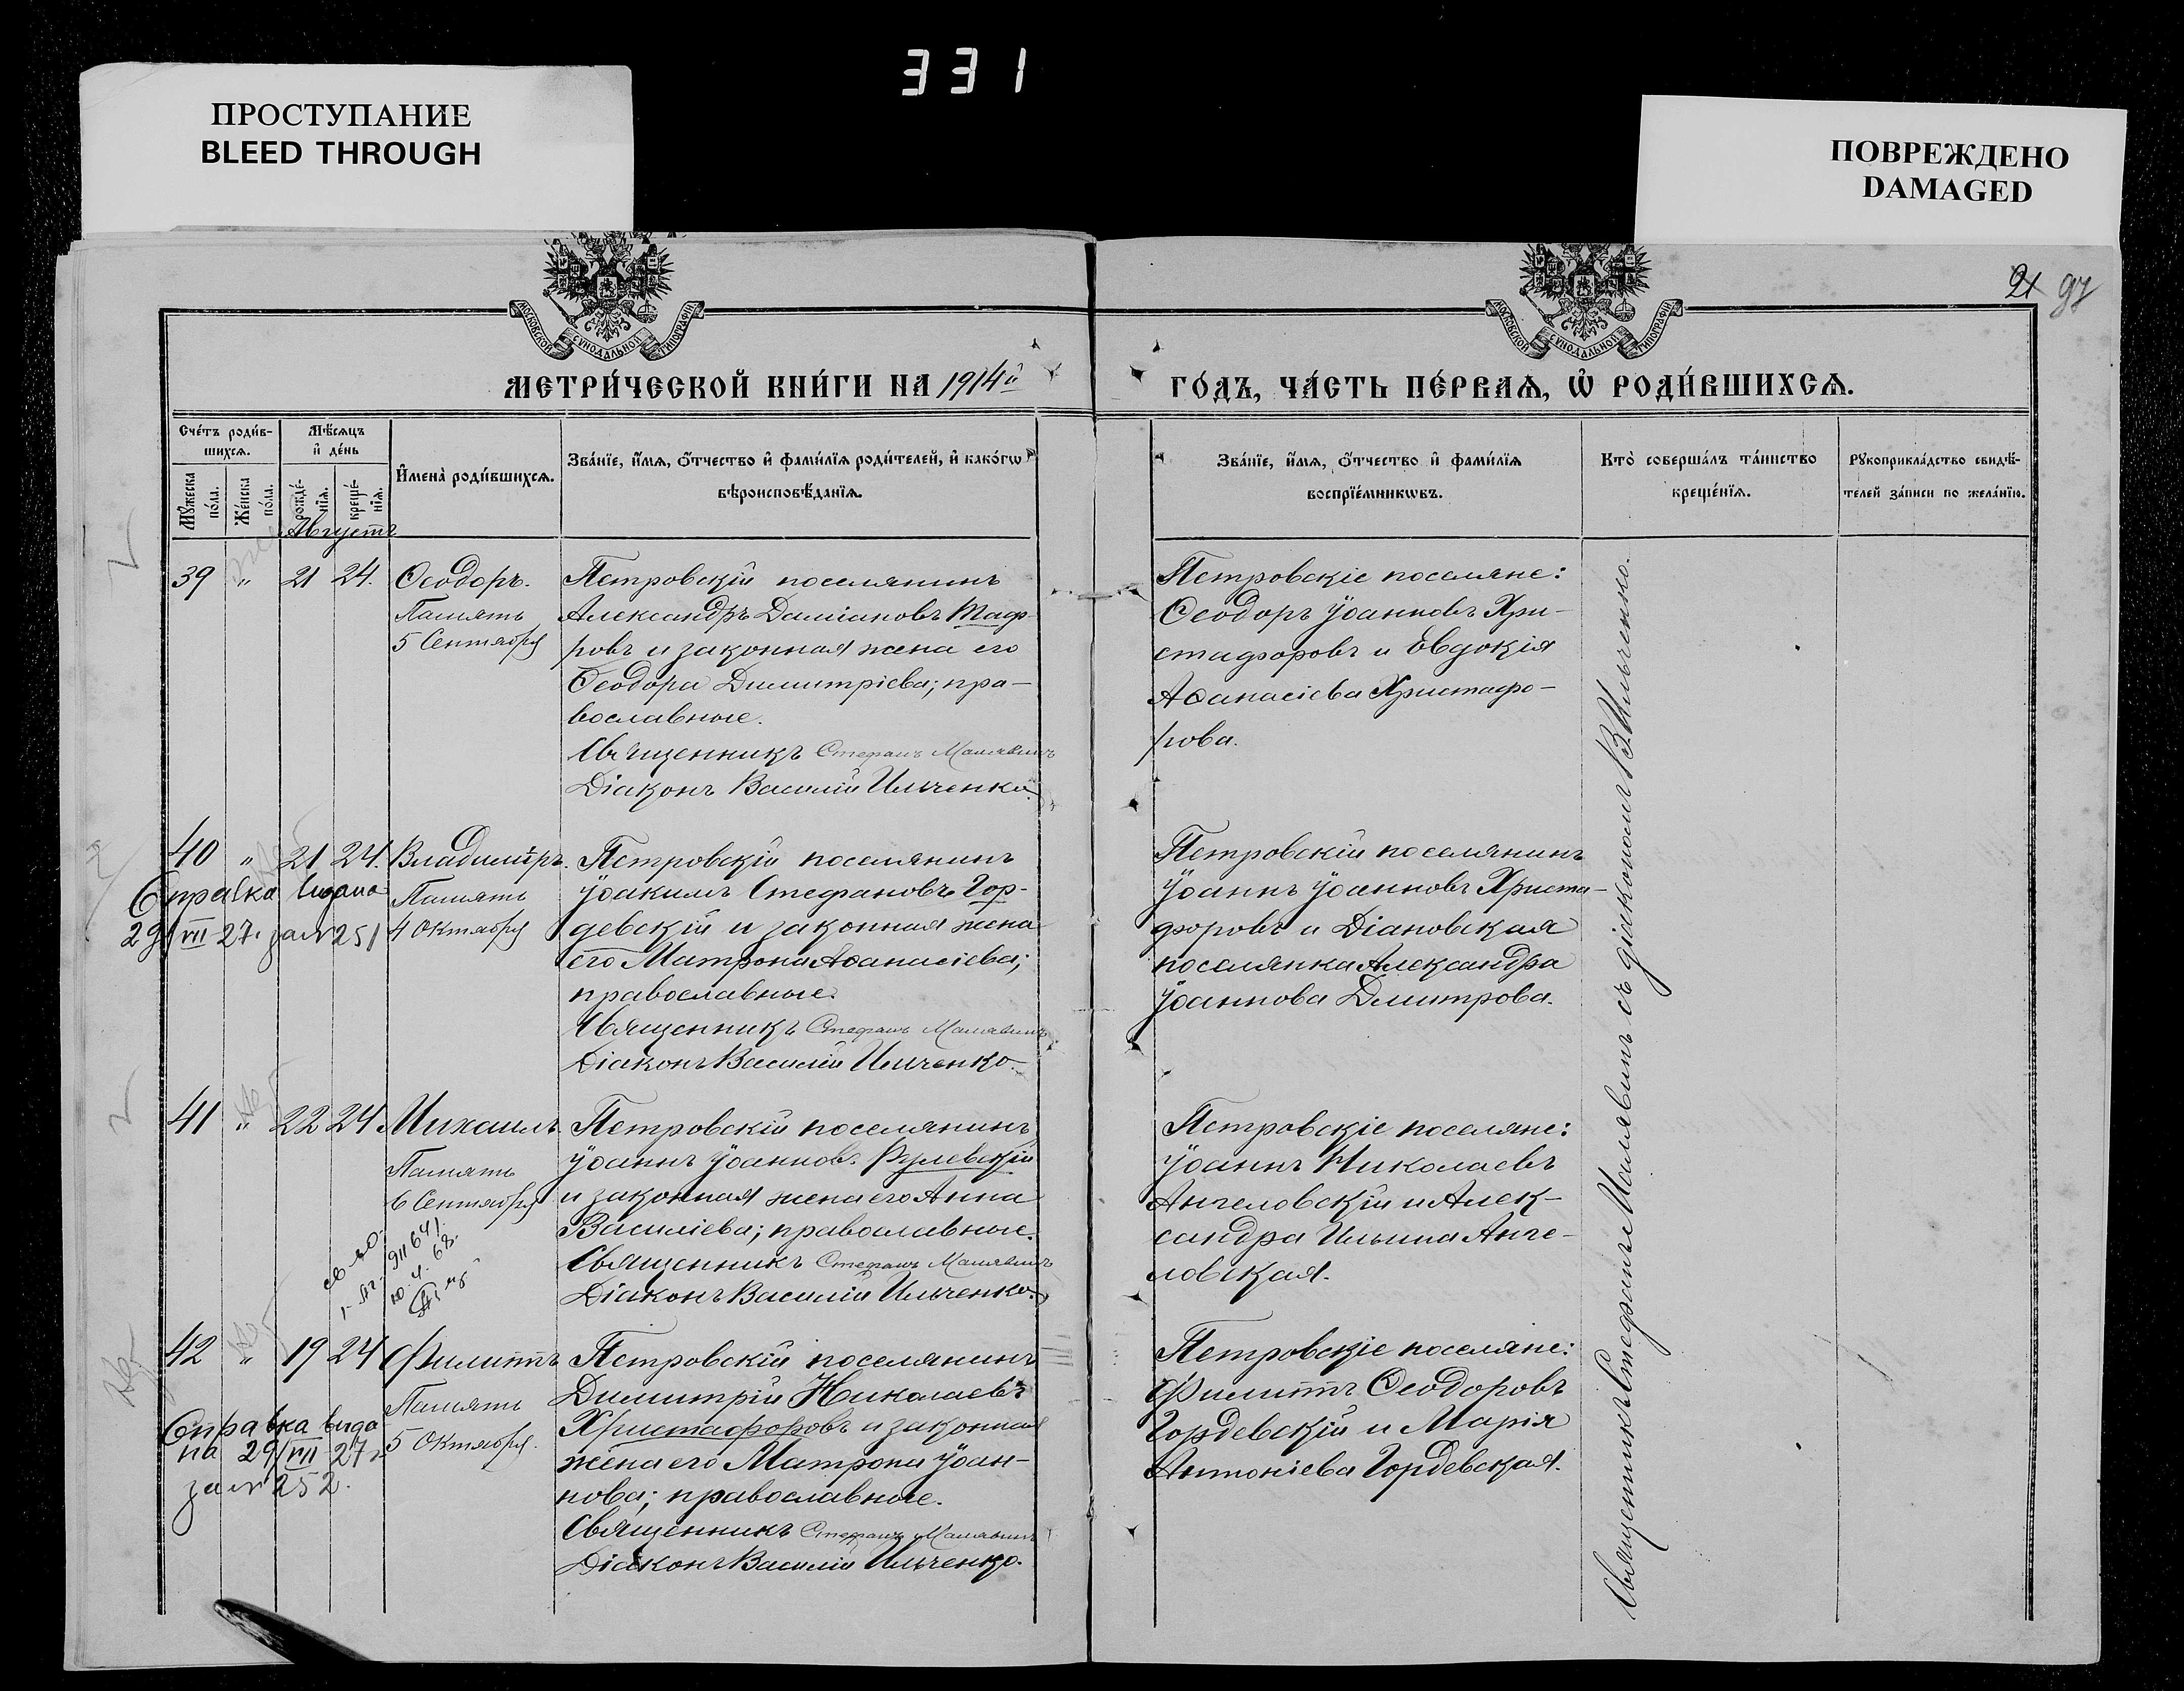 331
ПРОСТУПАНИЕ
BLEED THROUGH
ПОВРЕЖДЕНО
DAMAGED
МОСКОВСКОЙ СѴНОДАЛЬНОЙ ТИПОГРАФІИ
МОСКОВСКОЙ СѴНОДАЛЬНОЙ ТИПОГРАФІИ
21 97
МЕТРИ́ЧЕСКОЙ КНИ́ГИ НА 1914й
ГО́ДЪ, ЧА́СТЬ ПЕ́РВАѦ, Ѡ҆ РОДИ́ВШИХСѦ.
Сче́тъ роди́в-
шихсѧ.
Мꙋ́жеска по́ла.
Же́нска по́ла.
Мѣ́сѧцъ
и҆ де́нь
рожде́-нїѧ.
креще́-нїѧ.
И҆мена̀ роди́вшихсѧ.
Зва́нїе, и҆́мѧ, ѻ҆́тчество и҆ фами́лїѧ роди́телей, и҆ како́гѡ
вѣроисповѣ́данїѧ.
Зва́нїе, и҆́мѧ, ѻ҆́тчество и҆ фами́лїѧ
воспрїе́мникѡвъ.
Кто̀ соверша́лъ та́инство
креще́нїѧ.
Рꙋкоприкла́дство свидѣ́-
телей за́писи по жела́нїю.
Августъ
39 " 21 24. Ѳеодоръ.
Память
5 Сентября
Петровскій поселянинъ
Александръ Даміановъ Таф-
ровъ и законная жена его
Ѳеодора Димитріева; пра-
вославные.
Священникъ Стефанъ Малявинъ
Діаконъ Василій Ильченко.
Петровскіе поселяне:
Ѳеодоръ Іоанновъ Хри-
стафоровъ и Евдокія
Аѳанасіева Христафо-
рова.
40 " 21 24. Владиміръ.
Память
4 Октября
Справка выдана
29/VII 27. за № 251
Петровскій поселянинъ
Іоакимъ Стефановъ Гор-
девскій и законная жена
его Матрона Аѳанасіева;
православные.
Священникъ Стефанъ Малявинъ
Діаконъ Василій Ильченко.
Петровскій поселянинъ
Іоаннъ Іоанновъ Христа-
форовъ и Діановская
поселянка Александра
Іоаннова Дмитрова.
41 " 22 24 Михаилъ
Память
6 Сентября
Петровскій поселянинъ
Іоаннъ Іоанновъ Фулевскій
и законная жена его Анна
Василіева; православные.
Священникъ Стефанъ Малявинъ
Діаконъ Василій Ильченко.
Петровскіе поселяне:
Іоаннъ Николаевъ
Ангеловскій и Алек-
сандра Ильина Анге-
ловская.
42 " 19 24 Филиппъ
Память
5 Октября.
Справка выда
на 29/VII 27 г
за № 252.
Петровскій поселянинъ
Димитрій Николаевъ
Христафоровъ и законная
жена его Матрона Іоан-
нова; православные.
Священникъ Стефанъ Малявинъ
Діаконъ Василій Ильченко.
Петровскіе поселяне:
Филиппъ Ѳеодоровъ
Гордевскій и Марія
Антоніева Гордевская.
Священникъ Стефанъ Малявинъ съ діакономъ В. Ильченко.